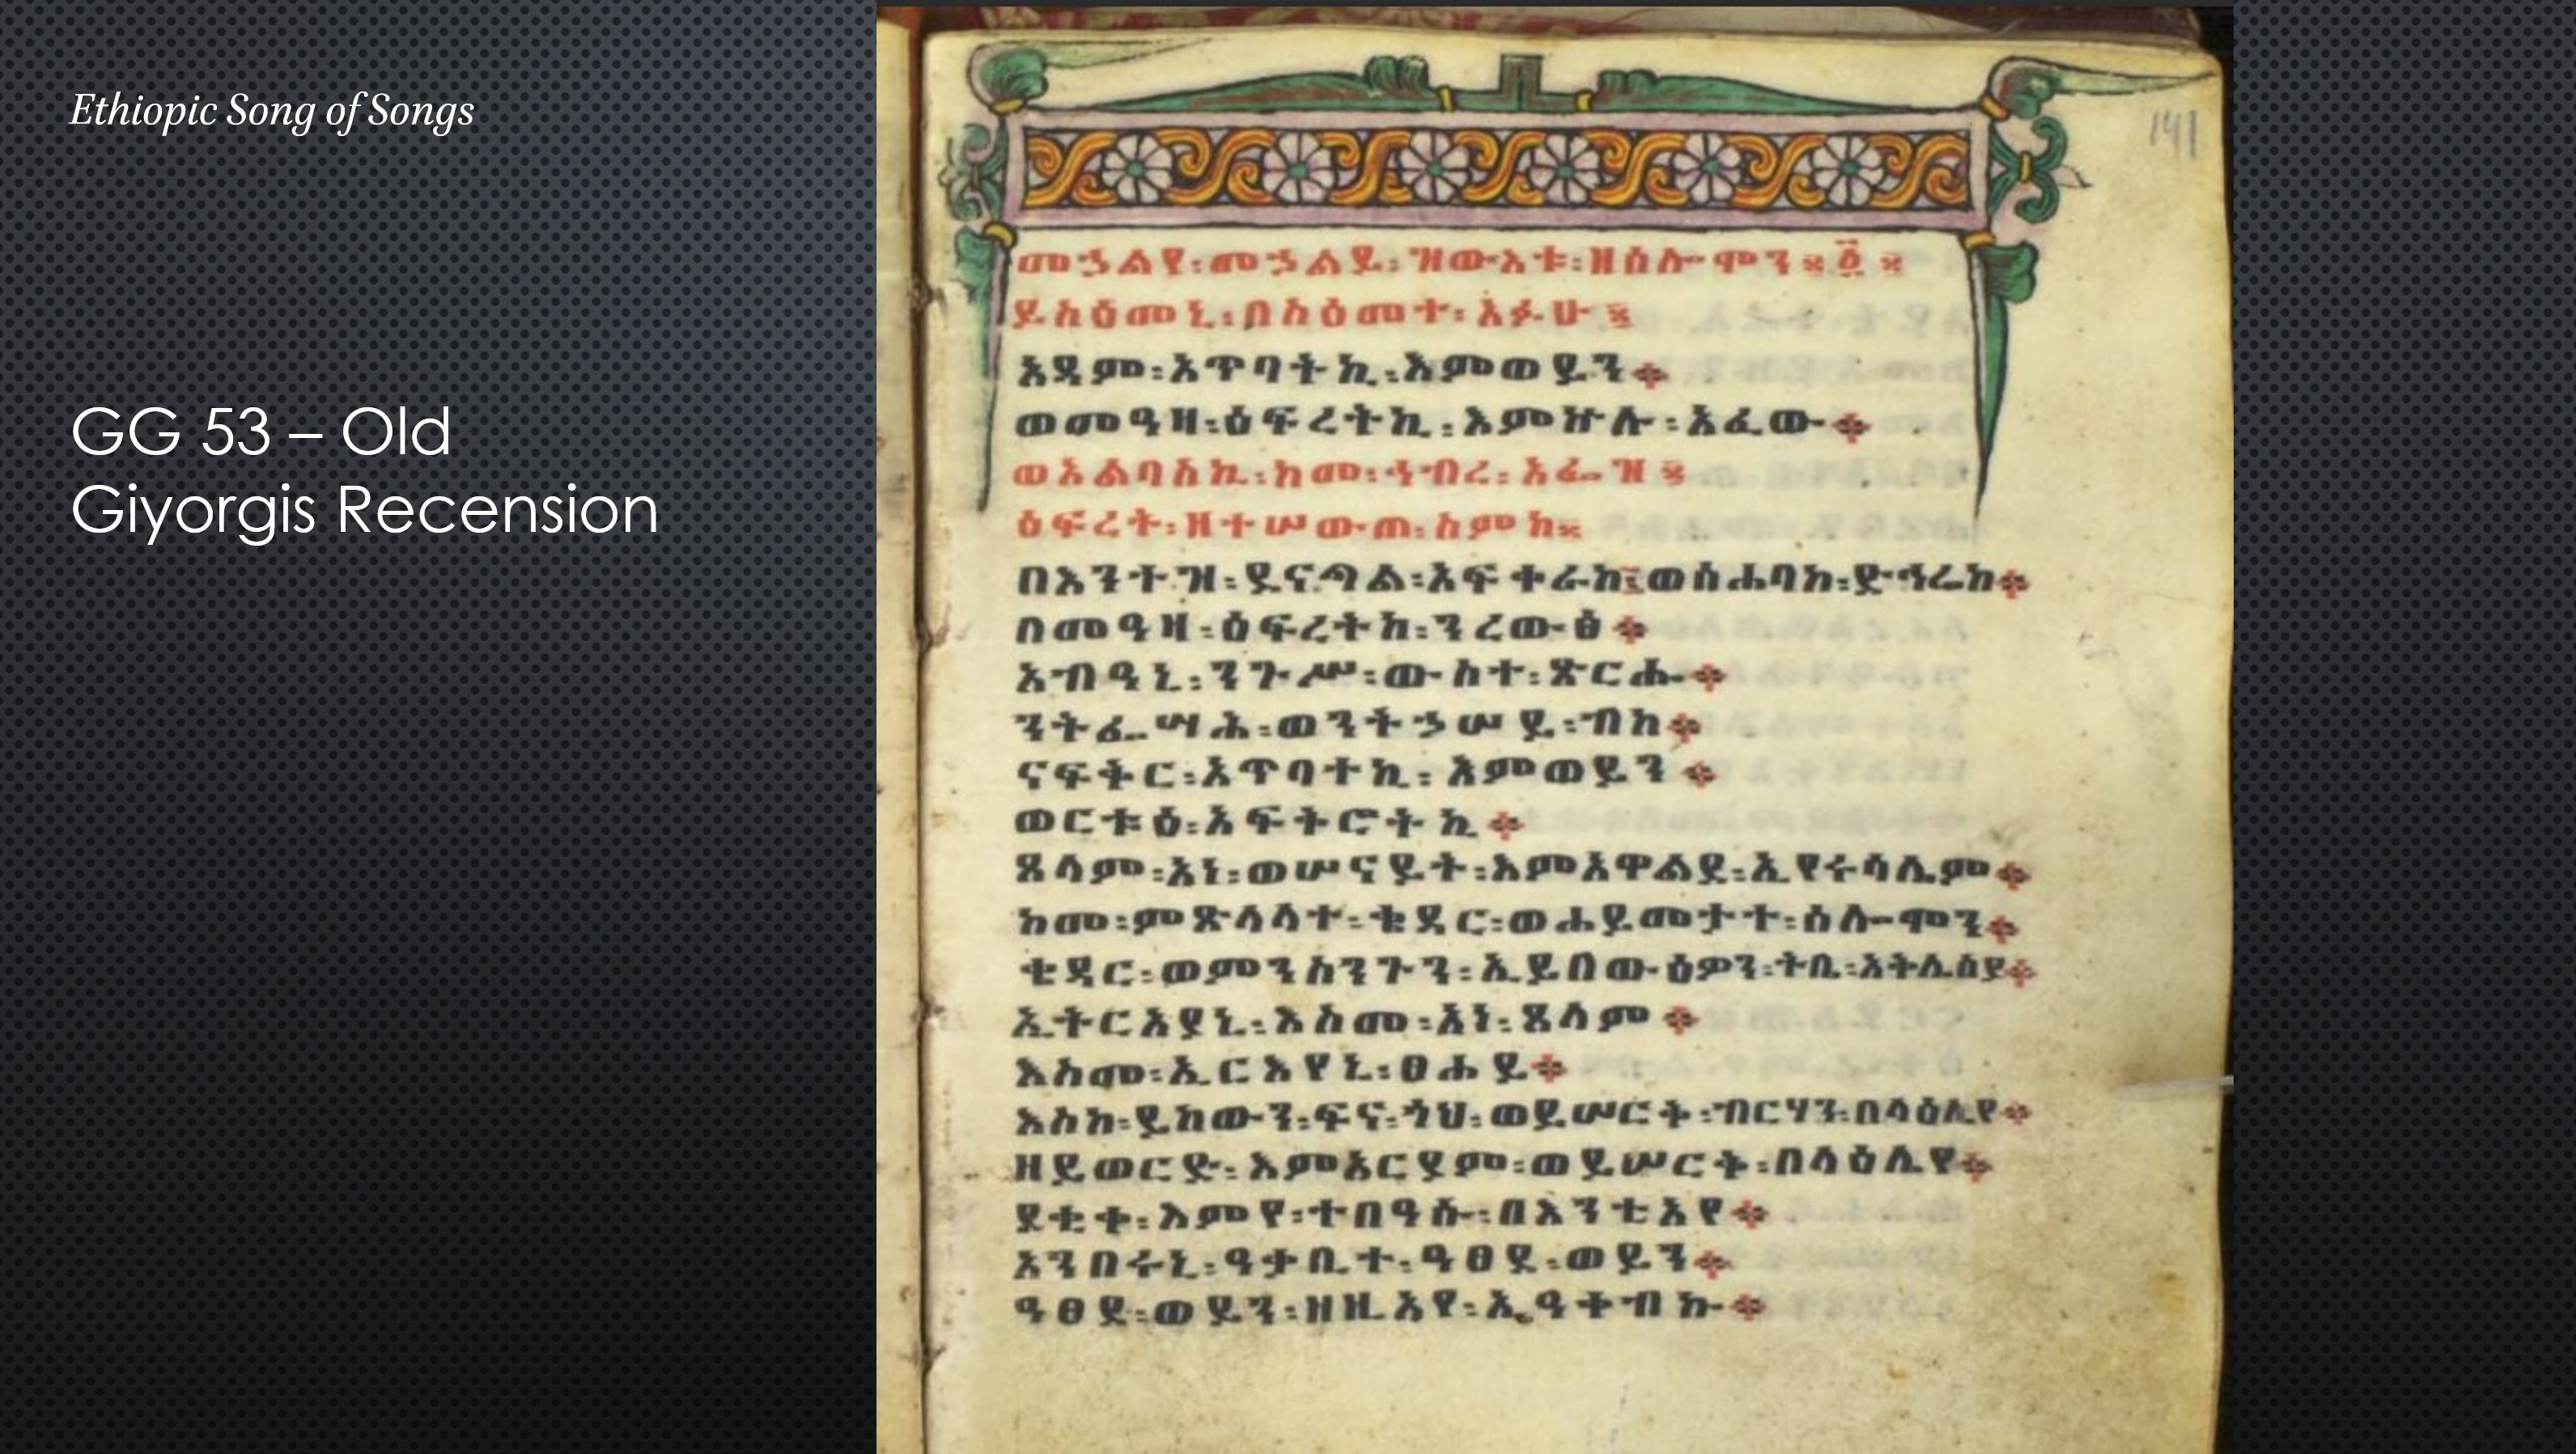 Ethiopic Song of Songs
GG 53 – Old
Giyorgis Recension
141
መኃልየ፡መኃልይ፡ዝውእቱ፡ዘሰሎሞን፨፩፨
ይስዕመኒ፡በስዕመተ፡አፉሁ፨
አዳም፡አጥባትኪ፡እምወይን
ወመዓዛ፡ዕፍረትኪ፡እምኵሉ፡አፈው
ወአልባስኪ፡ከመ፡ኅብረ፡አፈዝ፨
ዕፍረት፡ዘተሠውጠ፡ስምከ፨
በእንተዝ፡ደናግል፡አፍቀራከ፡ወሰሐባከ፡ድኅሬከ
በመዓዛ፡ዕፍረትከ፡ንረውፅ
አብዓኒ፡ንጉሥ፡ውስተ፡ጽርሑ
ንትፌሣሕ፡ወንትኃሠይ፡ብከ
ናፍቅር፡አጥባተኪ፡እምወይን
ወርቱዕ፡አፍትሮትኪ
ጸላም፡አነ፡ወሠናይት፡እምአዋልደ፡ኢየሩሳሌም
ከመ፡ምጽላላተ፡ቄዳር፡ወሐይመታተ፡ሰሎሞን
ቄዳር፡ወምንስንጉን፡ኢይበውዕዎን፡ትቤ፡እትሌሰይ
ኢትርአያኒ፡እስመ፡አነ፡ጸላም
እስመ፡ኢርእየኒ፡ፀሐይ
እስከ፡ይከውን፡ፍና፡ጎህ፡ወይሠርቅ፡ብርሃን፡በላዕሌየ
ዘይወርድ፡እምአርያም፡ወይሠርቅ፡በላዕሌየ
ደቂቀ፡እምየ፡ተበዓሱ፡በእንቲአየ
አንበሩኒ፡ዓቃቢተ፡ዓፀደ፡ወይን
ዓፀደ፡ወይን፡ዘዚአየ፡ኢዓቀብኩ